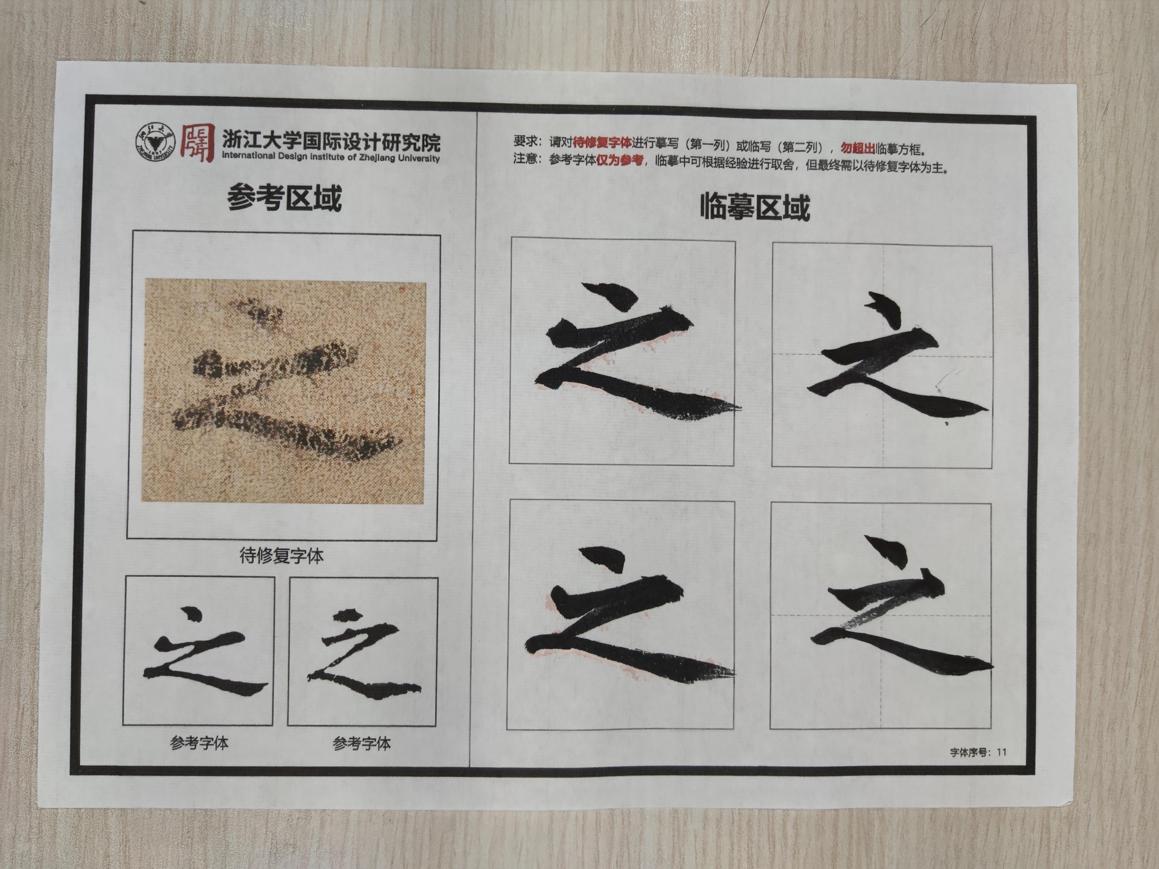 浙江大学国际设计研究院
International Design Institute of Zhejiang University
参考区域
之
待修复字体
之
之
参考字体
参考字体
要求：请对待修复字体进行摹写（第一列）或临写（第二列），勿超出临摹方框。
注意：参考字体仅为参考，临摹中可根据经验进行取舍，但最终需以待修复字体为主。
临摹区域
之
之
之
之
字体序号：11